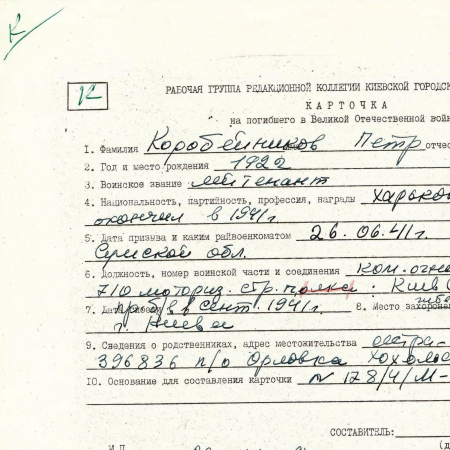 К
К
РАБОЧАЯ ГРУППА РЕДАКЦИОННОЙ КОЛЛЕГИИ КИЕВСКОЙ ГОРОДСК
КАРТОЧКА
на погибшего в Великой Отечественной войн
1. Фамилия Коробейников Петр отчес
2. Год и место рождения 1922
3. Воинское звание лейтенант
4. Национальность, партийность, профессия, награды Харько
окончил в 1941г.
5. Дата призыва и каким райвоенкоматом 26.06.41г.
Сумской обл.
6. Должность, номер воинской части и соединения ком. огне
710 моториз. стр. полка : Киев
7. Дата в сент. 1941г. 8. Место захорон
г. Киева
9. Сведения о родственниках, адрес местожительства сестра-
396836 п/о Орловка Хохоль
10. Основание для составления карточки № 178/4/М-
СОСТАВИТЕЛЬ:
И.П.